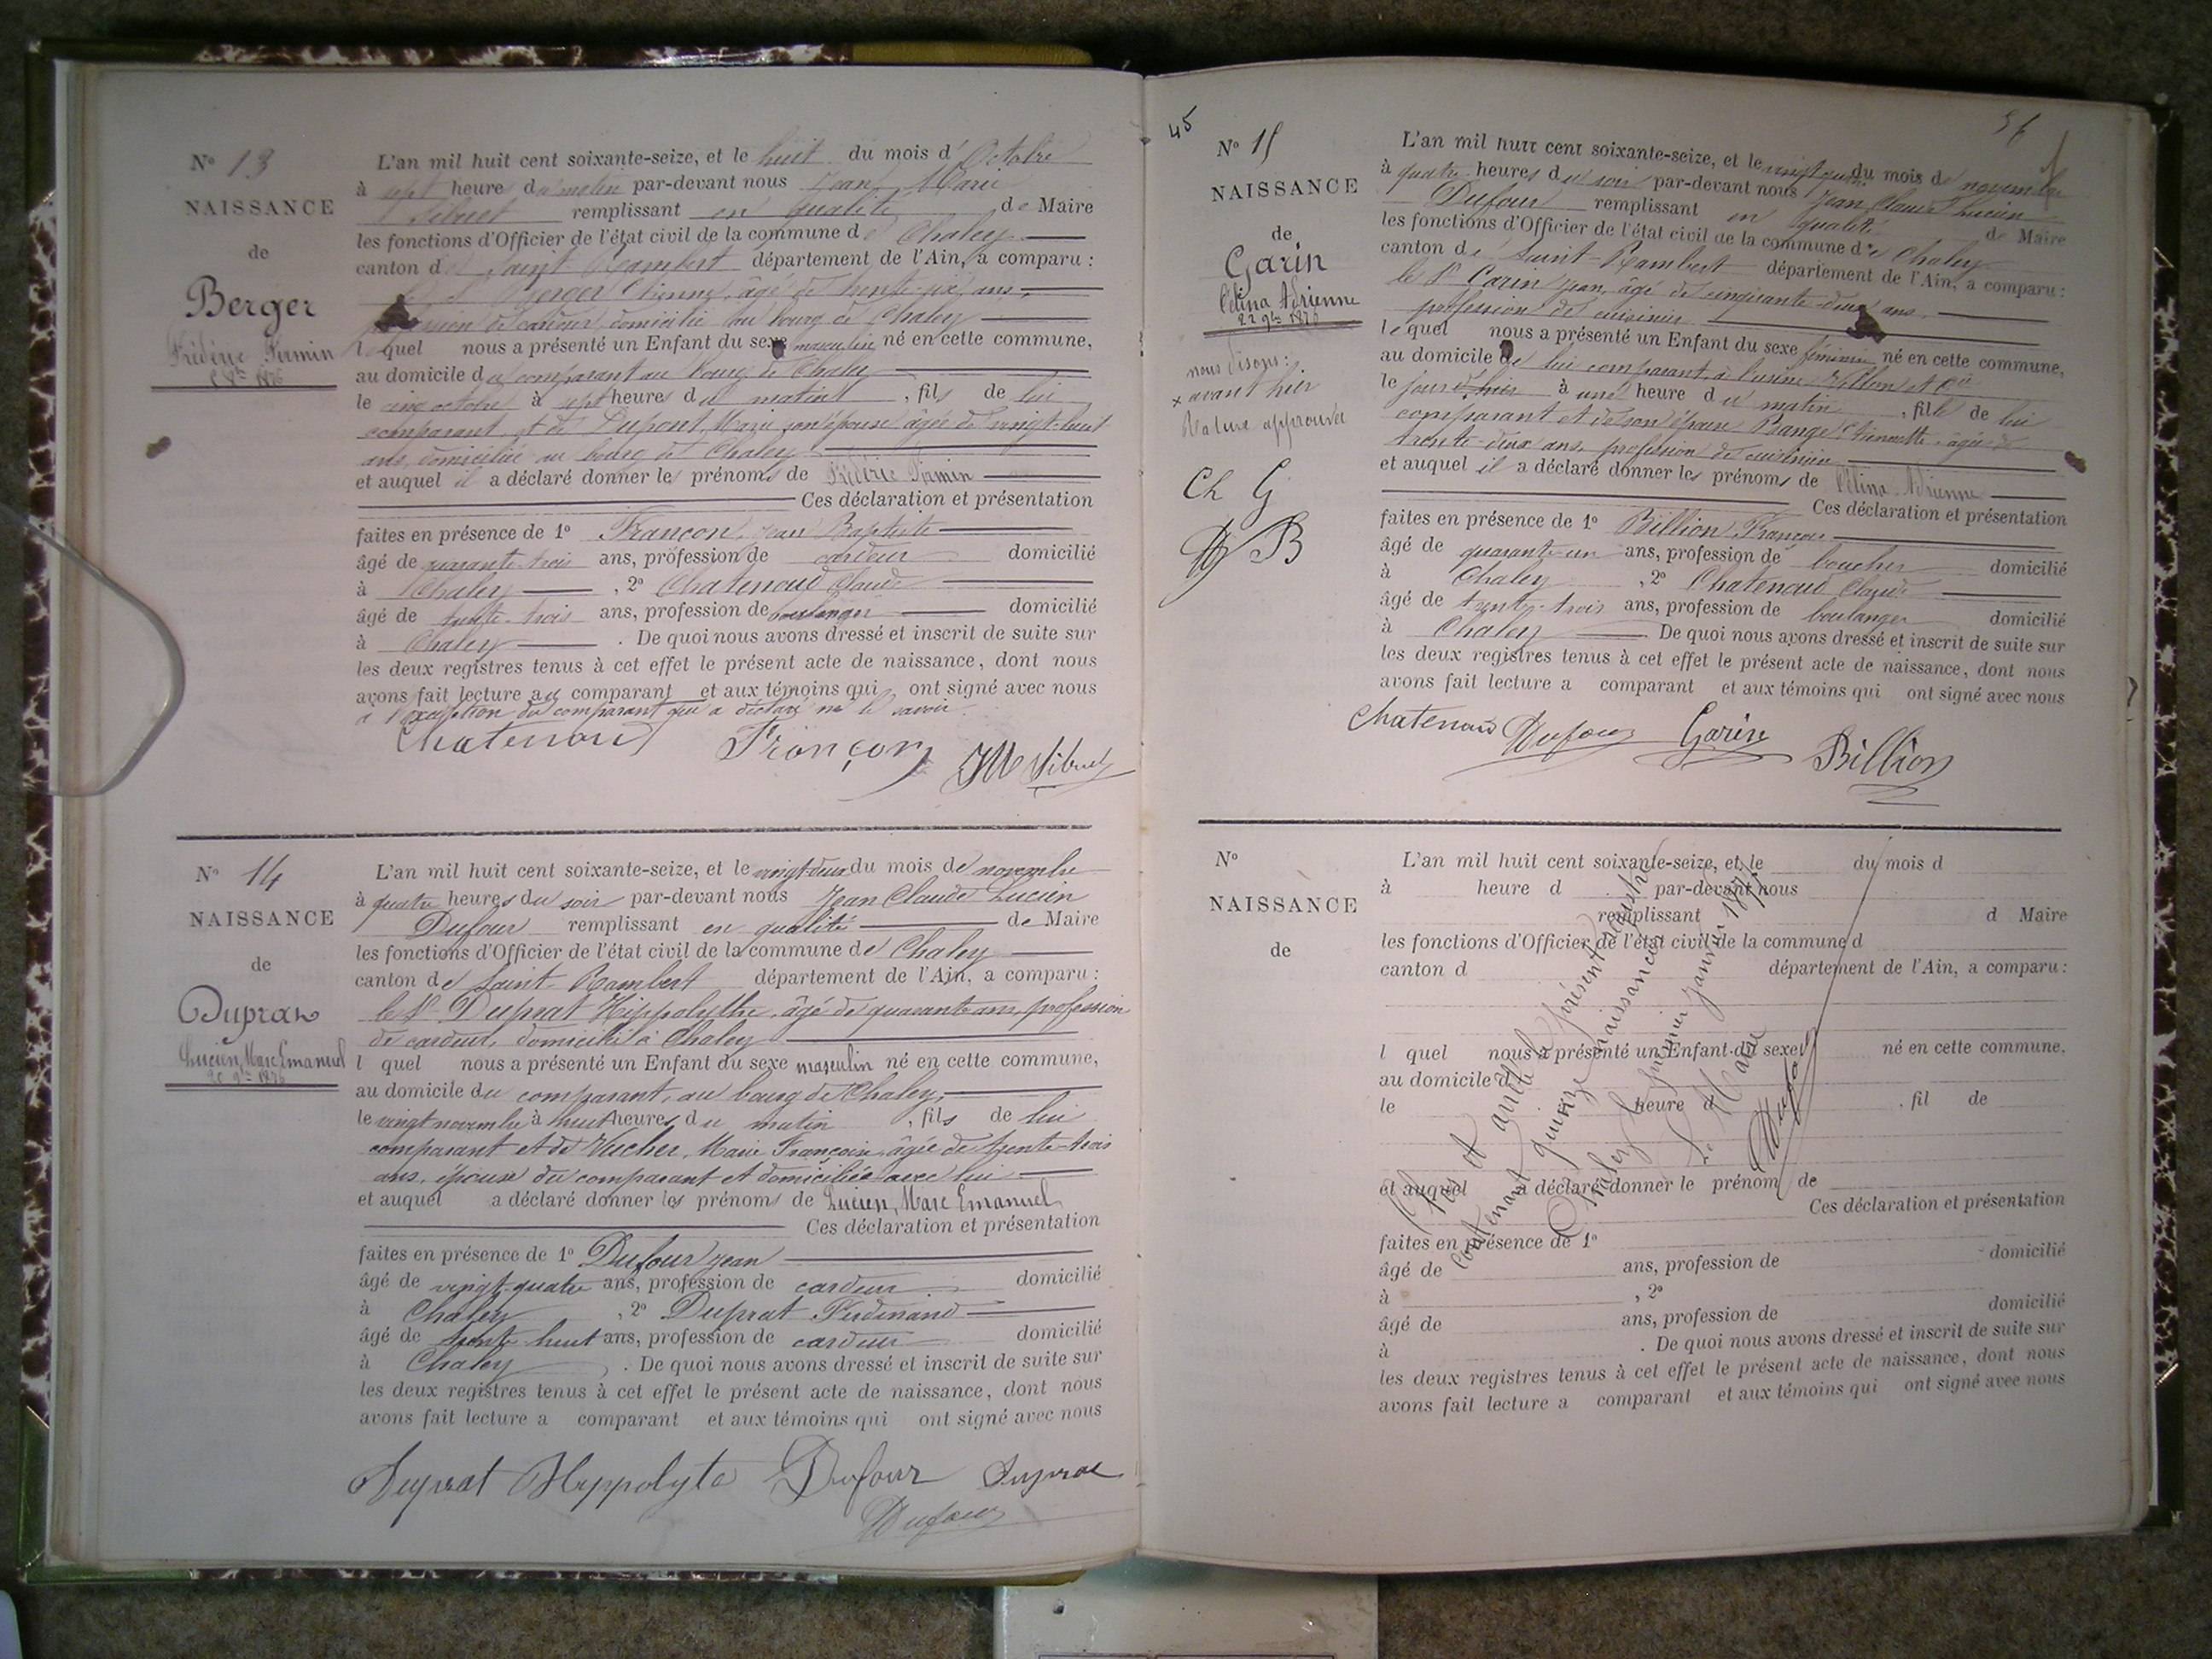 Nº 13
NAISSANCE
de
Berger
Frédéric Firmin
L'an mil huit cent soixante-seize, et le huit du mois d' Octobre
à sept heure du matin par-devant nous Jean Marie
Sibuet remplissant en qualité de Maire
les fonctions d'Officier de l'état civil de la commune de Chaley
canton de Saint Rambert département de l'Ain, a comparu :
le Sr Berger Etienne, âgé de trente-six ans,
profession de cardeur, domicilié au bourg de Chaley
lequel nous a présenté un Enfant du sexe masculin né en cette commune,
au domicile du comparant au bourg de Chaley
le cinq octobre à sept heures du matin, fils de lui
comparant, et de Dupont, Marie son épouse âgée de vingt-huit
ans, domiciliée au bourg de Chaley
et auquel il a déclaré donner les prénoms de Frédéric Firmin
Ces déclaration et présentation
faites en présence de 1º Françon, Jean Baptiste
âgé de quarante-trois ans, profession de cardeur domicilié
à Chaley, 2º Chatenoud Claude
âgé de trente-trois ans, profession de boulanger domicilié
à Chaley. De quoi nous avons dressé et inscrit de suite sur
les deux registres tenus à cet effet le présent acte de naissance, dont nous
avons fait lecture au comparant et aux témoins qui ont signé avec nous
à l'exception du comparant qui a déclaré ne le savoir.
Chatenoud Françon JM Sibuet
Nº 14
NAISSANCE
de
Duprat
Lucien, Marc Emanuel
20 9bre 1876
L'an mil huit cent soixante-seize, et le vingt-deux du mois de novembre
à quatre heures du soir par-devant nous Jean Claude Lucien
Dufour remplissant en qualité de Maire
les fonctions d'Officier de l'état civil de la commune de Chaley
canton de Saint-Rambert département de l'Ain, a comparu :
le Sr Duprat Hippolythe, âgé de quarante ans, profession
de cardeur, domicilié à Chaley
l quel nous a présenté un Enfant du sexe masculin né en cette commune,
au domicile du comparant, au bourg de Chaley,
le vingt novembre à huit heures du matin, fils de lui
comparant et de Vucher, Marie Françoise, âgée de trente-trois
ans, épouse du comparant et domiciliée avec lui
et auquel a déclaré donner les prénoms de Lucien, Marc Emanuel
Ces déclaration et présentation
faites en présence de 1º Dufour Jean
âgé de vingt-quatre ans, profession de cardeur domicilié
à Chaley, 2º Duprat Ferdinand
âgé de trente huit ans, profession de cardeur domicilié
à Chaley. De quoi nous avons dressé et inscrit de suite sur
les deux registres tenus à cet effet le présent acte de naissance, dont nous
avons fait lecture a comparant et aux témoins qui ont signé avec nous
Duprat Hyppolyte Dufour Duprat
Dufour
45
Nº 15
NAISSANCE
de
Garin
Célina Adrienne
22 9bre 1876
nous disons :
x avant hier
Rature approuvée
Ch G
D B
L'an mil huit cent soixante-seize, et le vingt quatre du mois de novembre
à quatre heures du soir par-devant nous Jean Claude Lucien
Dufour remplissant en qualité de Maire
les fonctions d'Officier de l'état civil de la commune de Chaley
canton de Saint-Rambert département de l'Ain, a comparu :
le Sr Garin Jean, âgé de cinquante-deux ans
profession de cuisinier
lequel nous a présenté un Enfant du sexe féminin né en cette commune,
au domicile de lui comparant, à l'usine
le jour d'hier à une heure du matin, fille de lui
comparant et de son épouse Bange Etiennette, âgée de
trente-deux ans, profession de cuisinière
et auquel il a déclaré donner les prénoms de Célina Adrienne
Ces déclaration et présentation
faites en présence de 1º Billion, François
âgé de quarante-un ans, profession de boucher domicilié
à Chaley, 2º Chatenoud Claude
âgé de trente-trois ans, profession de boulanger domicilié
à Chaley. De quoi nous avons dressé et inscrit de suite sur
les deux registres tenus à cet effet le présent acte de naissance, dont nous
avons fait lecture a comparant et aux témoins qui ont signé avec nous
Chatenoud Dufour Garin Billion
Nº
NAISSANCE
de
L'an mil huit cent soixante-seize, et le du mois d
à heure d par-devant nous
remplissant d Maire
les fonctions d'Officier de l'état civil de la commune d
canton d département de l'Ain, a comparu :
l quel nous a présenté un Enfant du sexe né en cette commune,
au domicile d
le heure d , fil de
et auquel a déclaré donner le prénom de
Ces déclaration et présentation
faites en présence de 1º
âgé de ans, profession de domicilié
à , 2º
âgé de ans, profession de domicilié
à . De quoi nous avons dressé et inscrit de suite sur
les deux registres tenus à cet effet le présent acte de naissance, dont nous
avons fait lecture a comparant et aux témoins qui ont signé avec nous
Clos et arrêté le présent registre
contenant quinze naissances
Chaley le premier janvier 1877
Le Maire
Dufour